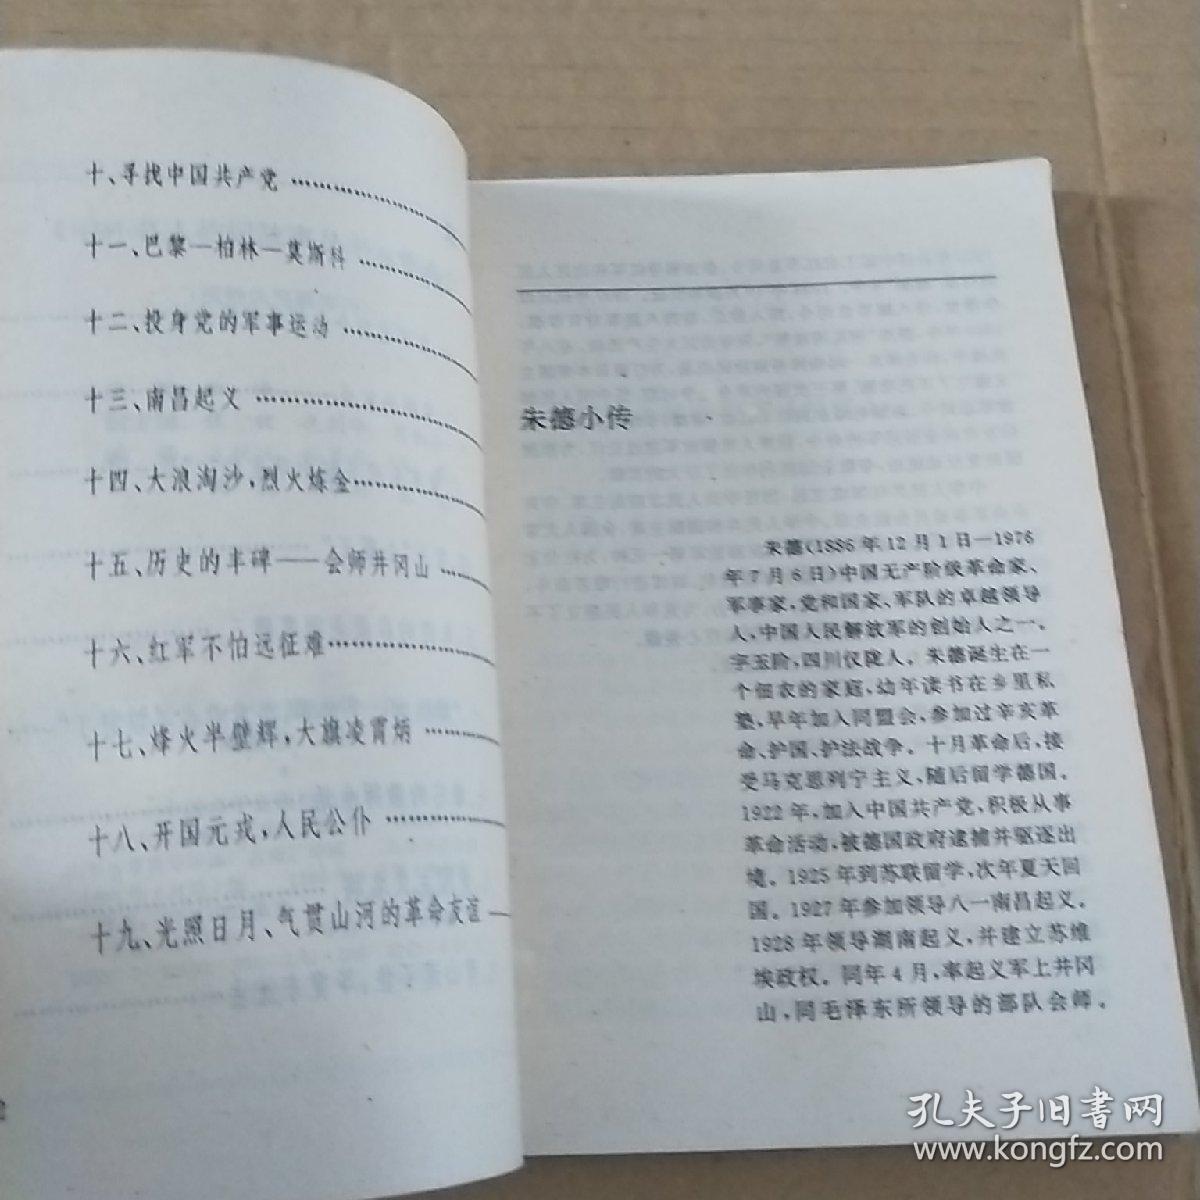 十、寻找中国共产党 ………………
十一、巴黎—柏林—莫斯科 ………………
十二、投身党的军事运动 ………………
十三、南昌起义 ………………
十四、大浪淘沙，烈火炼金………………
十五、历史的丰碑——会师井冈山 ………
十六、红军不怕远征难………………
十七、烽火半壁辉，大旗凌霄炳 ………
十八、开国元戎，人民公仆 ………………
十九、光照日月、气贯山河的革命友谊 —
2
朱德小传
朱德（1886年12月1日—1976
年7月6日）中国无产阶级革命家、
军事家，党和国家、军队的卓越领导
人，中国人民解放军的创始人之一。
字玉阶，四川仪陇人。朱德诞生在一
个佃农的家庭，幼年读书在乡里私
塾，早年加入同盟会，参加过辛亥革
命、护国、护法战争。十月革命后，接
受马克思列宁主义，随后留学德国。
1922年，加入中国共产党，积极从事
革命活动，被德国政府逮捕并驱逐出
境。1925年到苏联留学，次年夏天回
国。1927年参加领导八一南昌起义。
1928年领导湖南起义，并建立苏维
埃政权。同年4月，率起义军上井冈
山，同毛泽东所领导的部队会师。
孔夫子旧书网
www.kongfz.com